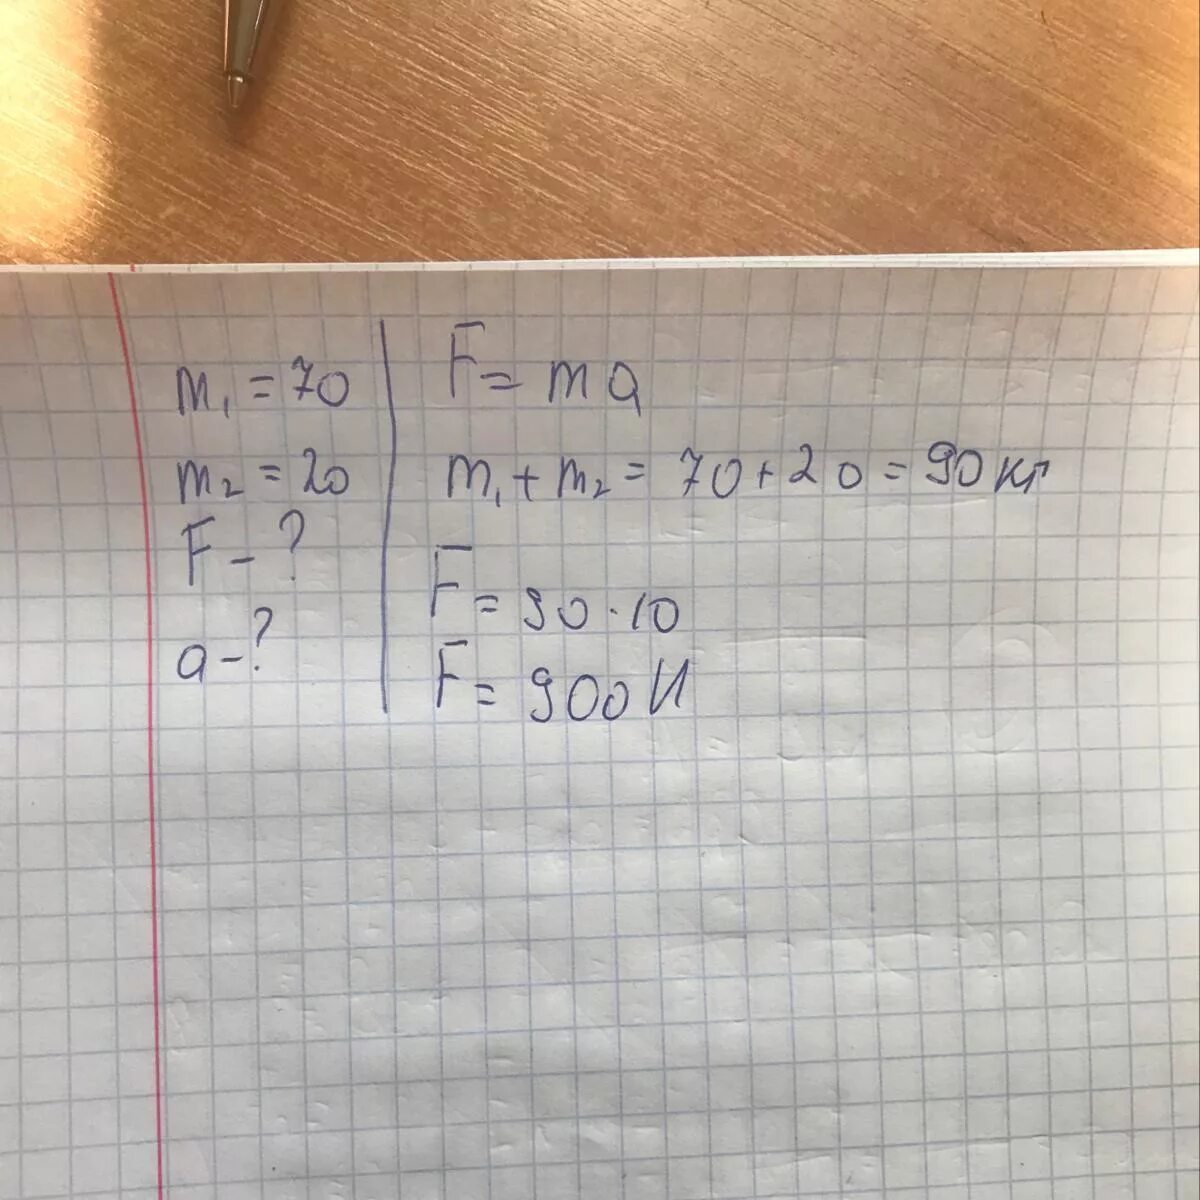 m₁ = 70
m₂ = 20
F - ?
a - ?
F = ma
m₁ + m₂ = 70 + 20 = 90 кг
F = 90 · 10
F = 900 Н